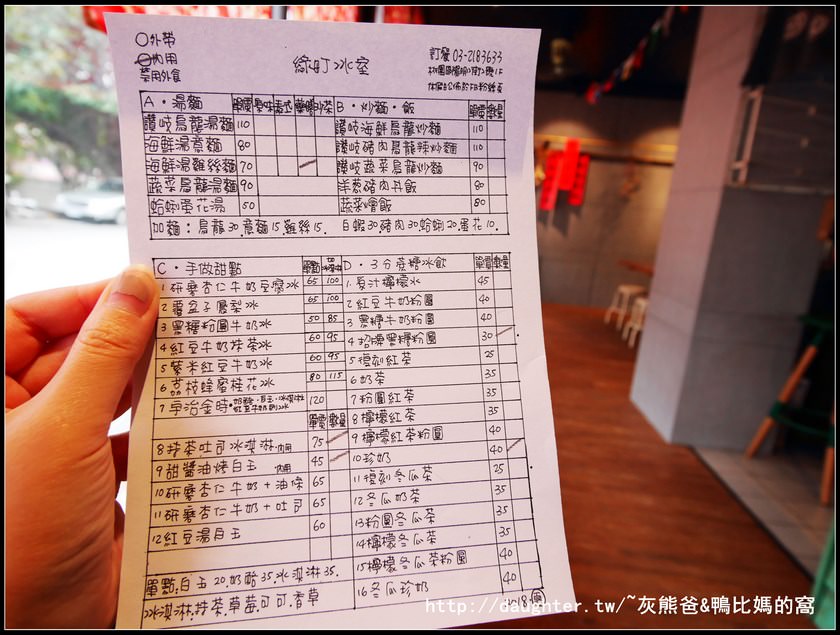 外帶
內用
禁用外食
綠町冰室
訂餐 03-2183633
A・湯麵 單價 原味
讚岐烏龍湯麵 110
海鮮湯意麵 80
海鮮湯雞絲麵 70
蔬菜烏龍湯麵 90
蛤蜊蛋花湯 50
B・炒麵・飯 單價 數量
讚岐海鮮烏龍炒麵 110
讚岐豬肉烏龍辣炒麵 110
讚岐蔬菜烏龍炒麵 90
洋蔥豬肉丼飯 80
蔬菜燴飯 80
加麵：烏龍30.意麵15.雞絲15. 白蝦30.豬肉30.蛤蜊20.蛋花10.
C・手做甜點 單點
1 研磨杏仁牛奶豆腐冰 65 100
2 覆盆子鳳梨冰 65 100
3 黑糖粉圓牛奶冰 50 85
4 紅豆牛奶抹茶冰 60 95
5 紫米紅豆牛奶冰 60 95
6 荔枝蜂蜜桂花冰 80 115
7 宇治金時 120
單價 數量
8 抹茶吐司冰淇淋.內用 75
9 甜醬油烤白玉 內用 45
10 研磨杏仁牛奶+油條 65
11 研磨杏仁牛奶+吐司 65
12 紅豆湯白玉 60
單點:白玉20.奶酪35.冰淇淋35.
冰淇淋:抹茶.草莓.可可.香草
D・3分蔗糖冰飲 單價 數量
1 原汁檸檬冰 45
2 紅豆牛奶粉圓 40
3 黑糖牛奶粉圓 40
4 招牌黑糖粉圓 30
5 復刻紅茶 25
6 奶茶 35
7 粉圓紅茶 35
8 檸檬紅茶 35
9 檸檬紅茶粉圓 40
10 珍奶 40
11 復刻冬瓜茶 25
12 冬瓜奶茶 35
13 粉圓冬瓜茶 35
14 檸檬冬瓜茶 35
15 檸檬冬瓜茶粉圓 40
16 冬瓜珍奶 40
http://daughter.tw/~灰熊爸&鴨比媽的窩